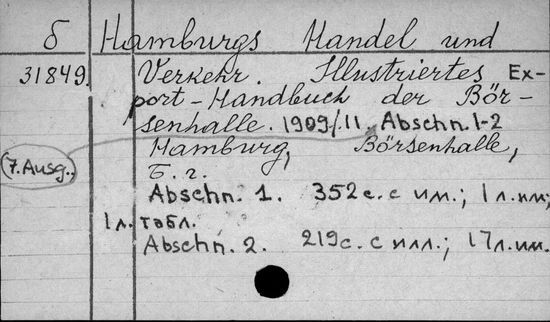 Б Hamburgs Handel und
31849. Verkehr. Illustriertes Ex-
port-Handbuch der Bör-
senhalle. 1909/11. Abschn. 1-2
Hamburg, Börsenhalle,
7. Ausg..
Б. г.
Abschn. 1. 352 с. с им.; 1 л. им;
1 л. табл.
Abschn. 2. 219 с. с илл.; 17 л. им.